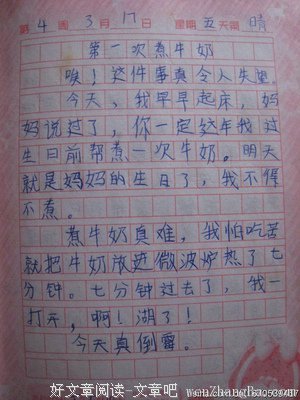 第4周3月17日 星期五 天气晴
第一次煮牛奶
唉！这件事真令人失望
今天，我早早起床，妈
妈说过了，你一定这年我过
生日前帮煮一次牛奶。明天
就是妈妈的生日了，我不得
不煮。
煮牛奶真难，我怕吃苦
就把牛奶放进微波炉热了七
分钟。七分钟过去了，我一
打开，啊！湖了！
今天真倒霉。
好文章阅读-文章吧 wenzhangba.com